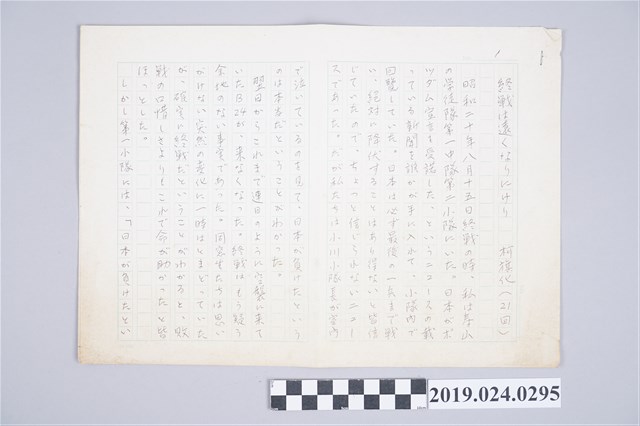 終戦は遠くなりにけり 柯旗化(21回)
昭和二十年八月十五日終戦の時、私は寿山
の学徒隊第一中隊第二小隊にいた。日本がポ
ツダム宣言を受諾した、というニュースの載
っている新聞を誰かが手に入れて、小隊内で
回覧していた。日本は必ず最後の一兵まで戦
い、絶対に降伏することはあり得ないと皆信
じていたので、ちょっと信じられないニュー
スであった。だが私たちは小川小隊長が室内
で泣いているのを見て、日本が負けたという
のは本当だということがわかった。
翌日からこれまで連日のように空襲に来て
いたB24が来なくなった。終戦はもう疑う
余地のない事実であった。同窓生たちは思い
がけない突然の変化に一時はとまどっていた
が、確実に終戦だということがわかると、敗
戦の口惜しさよりもこれで命が助かったと皆
ほっとした。
しかし第一小隊には、「日本が負けたとい
2019.024.0295